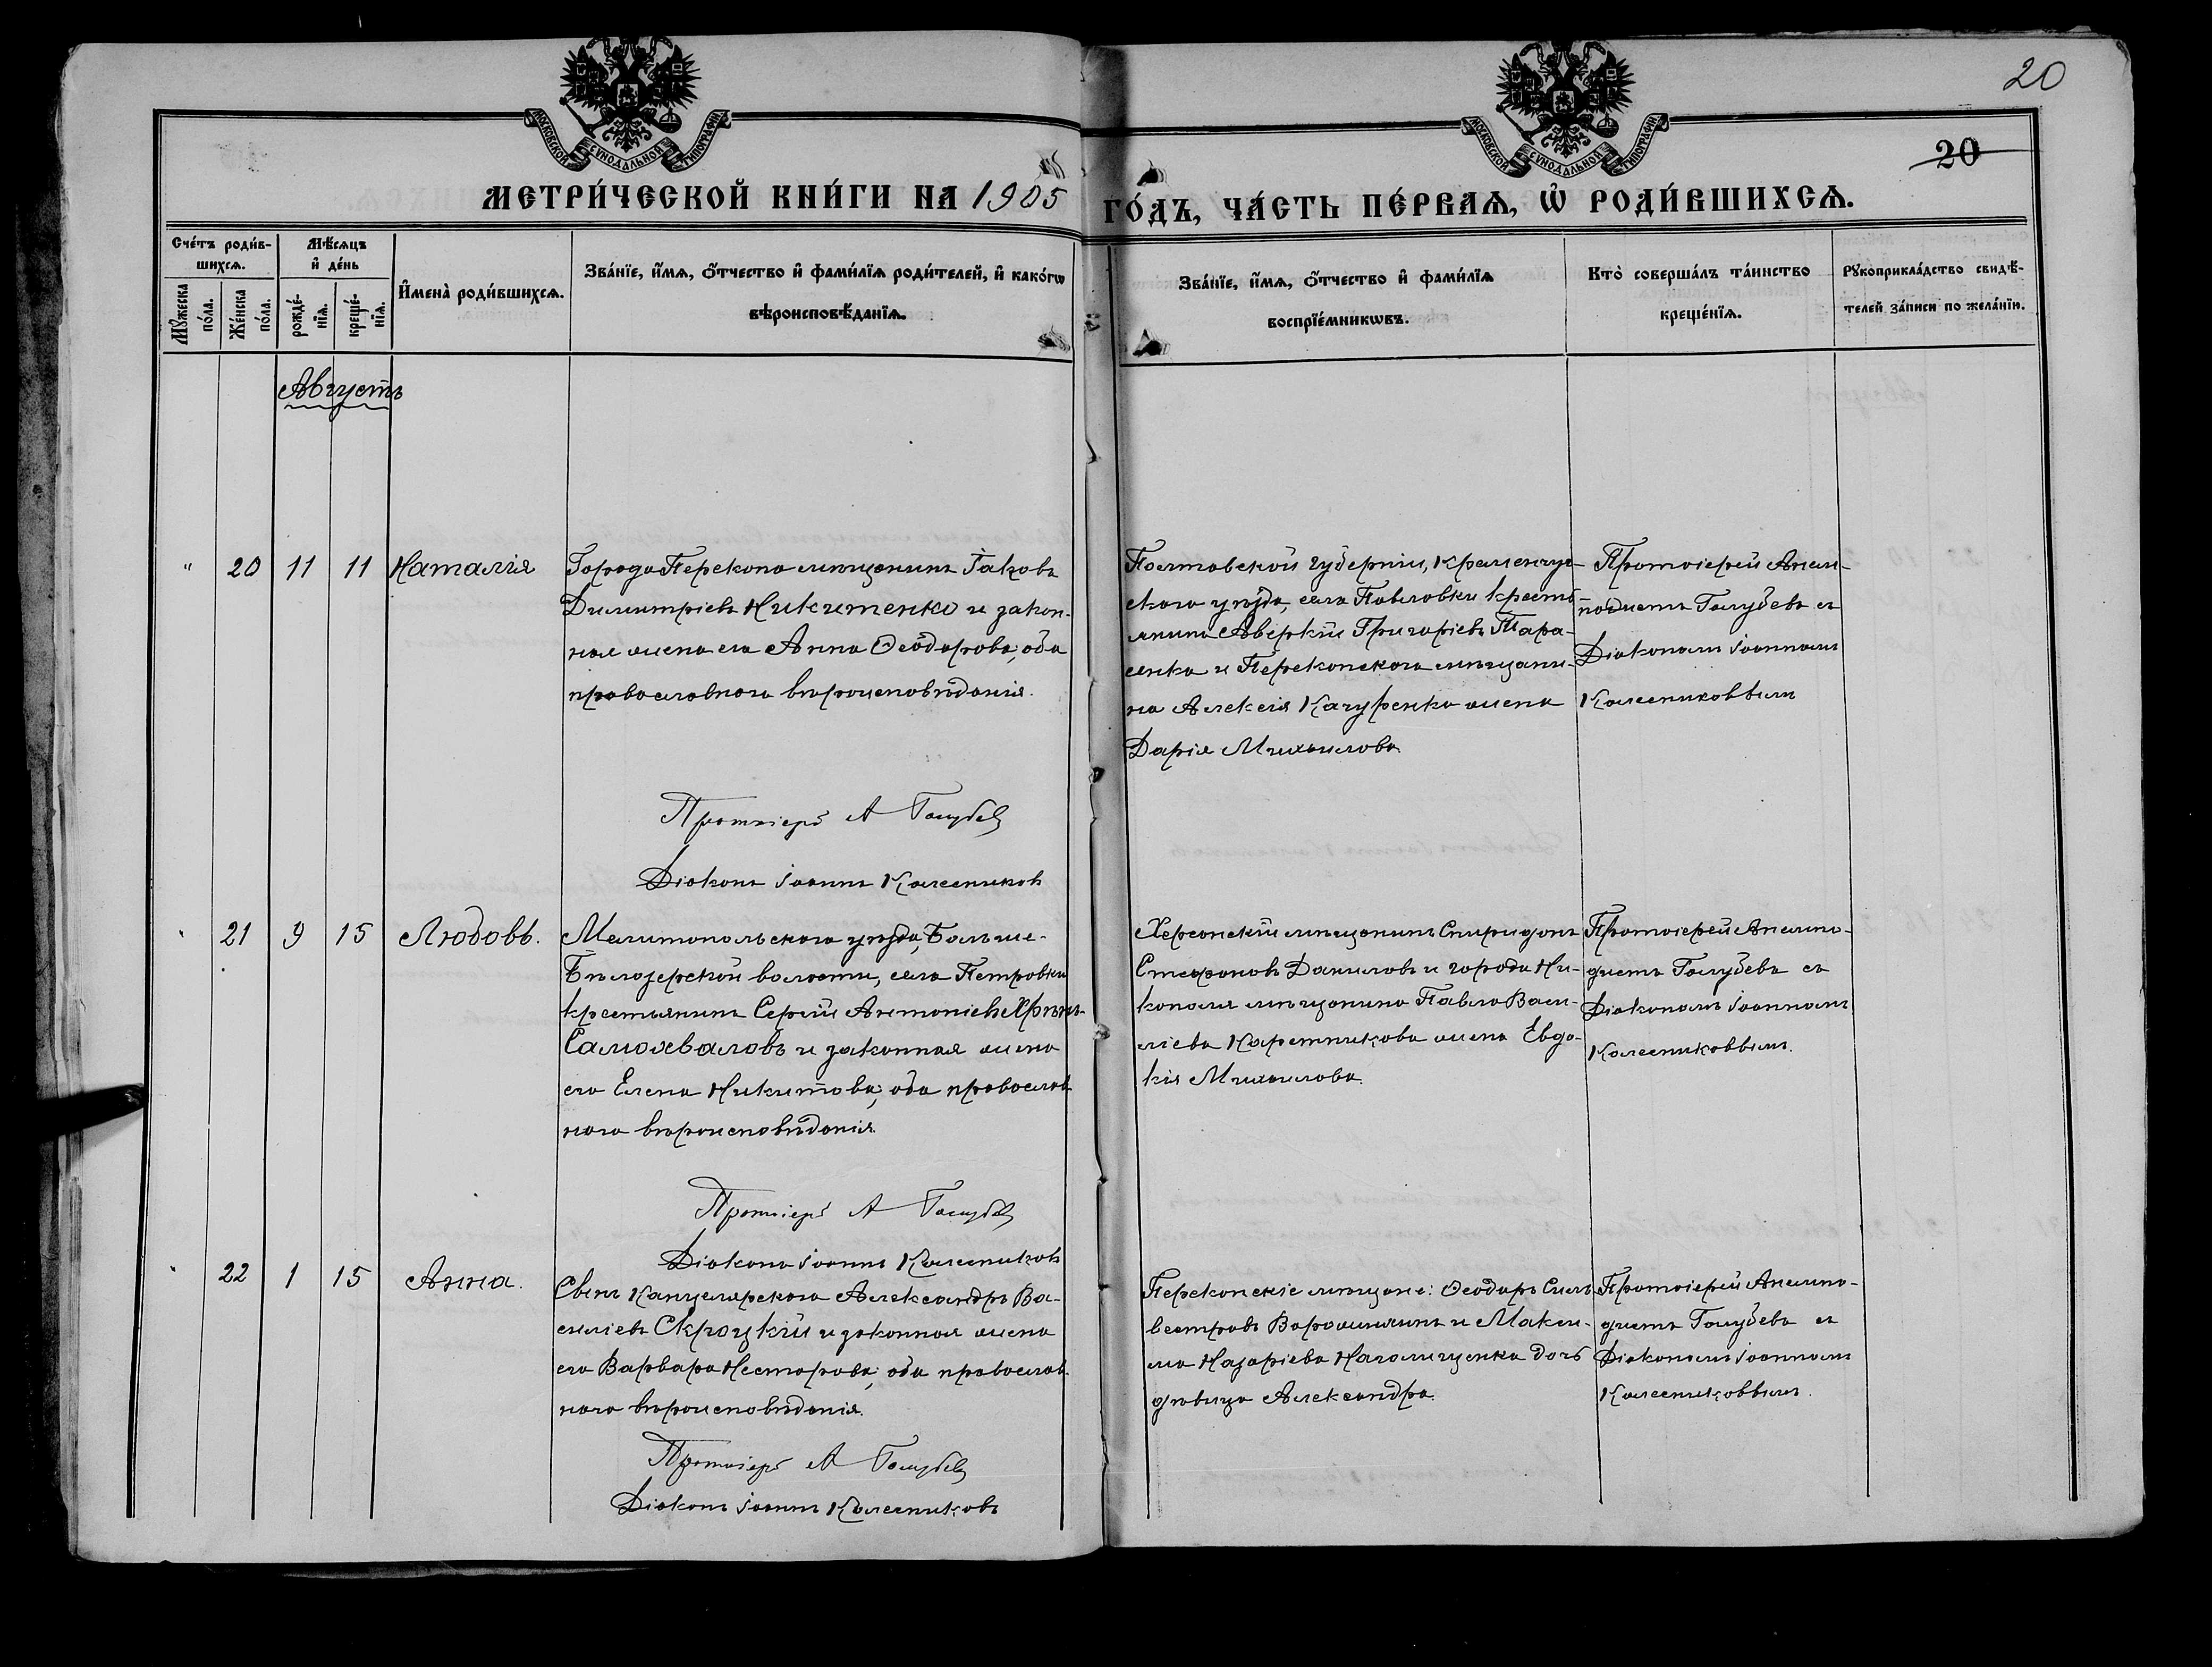 20
20
МОСКОВСКОЙ СУНОДАЛЬНОЙ ТИПОГРАФІИ
МОСКОВСКОЙ СУНОДАЛЬНОЙ ТИПОГРАФІИ
МЕТРИ́ЧЕСКОЙ КНИ́ГИ НА 1905 ГО́ДЪ, ЧА́СТЬ ПЕ́РВАѦ, Ѡ҆ РОДИ́ВШИХСѦ.
Сче́тъ роди́в-
шихсѧ.
Мꙋ́жеска по́ла.
Же́нска по́ла.
Мѣ́сѧцъ
и҆ де́нь
рожде́-
нїѧ.
креще́-
нїѧ.
И҆мена̀ роди́вшихсѧ.
Зва́нїе, и҆́мѧ, ѻ҆́тчество и҆ фами́лїѧ роди́телей, и҆ како́гѡ
вѣроисповѣ́данїѧ.
Зва́нїе, и҆́мѧ, ѻ҆́тчество и҆ фами́лїѧ
воспрїе́мникѡвъ.
Кто̀ соверша́лъ та́инство
креще́нїѧ.
Рꙋкоприкла́дство свидѣ́-
телей за́писи по жела́нїю.
Августъ
" 20 11 11 Наталія
Города Перекопа мѣщанинъ Іаковъ
Димитріевъ Никитенко и закон-
ная жена его Анна Ѳеодорова, оба
православнаго вѣроисповѣданія.
Протоіерей А Голубевъ
Діаконъ Іоаннъ Колесниковъ
Полтавской губерніи, Кременчуг-
скаго уѣзда, села Павловки кресть-
янинъ Аверкій Григоріевъ Тара-
сенко и Перекопскаго мѣщани-
на Алексія Качуренко жена
Дарія Михаилова.
Протоіерей Анем-
подистъ Голубевъ съ
Діакономъ Іоанномъ
Колесниковымъ
" 21 9 15 Любовь.
Мелитопольскаго уѣзда, Больше-
Бѣлозерской волости, села Петровки
крестьянинъ Сергій Антоніевъ Хрѣнъ-
Самохваловъ и законная жена
его Елена Никитова, оба православ-
наго вѣроисповѣданія.
Протоіерей А Голубевъ
Діаконъ Іоаннъ Колесниковъ
Херсонскій мѣщанинъ Спиридонъ
Стефановъ Даниловъ и города Ни-
кополя мѣщанина Павла Васи-
ліева Каретникова жена Евдо-
кія Михаилова.
Протоіерей Анемпо-
дистъ Голубевъ съ
Діакономъ Іоанномъ
Колесниковымъ.
" 22 1 15 Анна.
Сынъ Канцелярскаго Александръ Ва-
силіевъ Скроцкій и законная жена
его Варвара Несторова, оба православ-
наго вѣроисповѣданія.
Протоіерей А Голубевъ
Діаконъ Іоаннъ Колесниковъ
Перекопскіе мѣщане: Ѳеодоръ Силь-
вестровъ Ворожилинъ и Макси-
ма Назаріева дочь
дѣвица Александра.
Протоіерей Анемпо-
дистъ Голубевъ съ
Діакономъ Іоанномъ
Колесниковымъ.